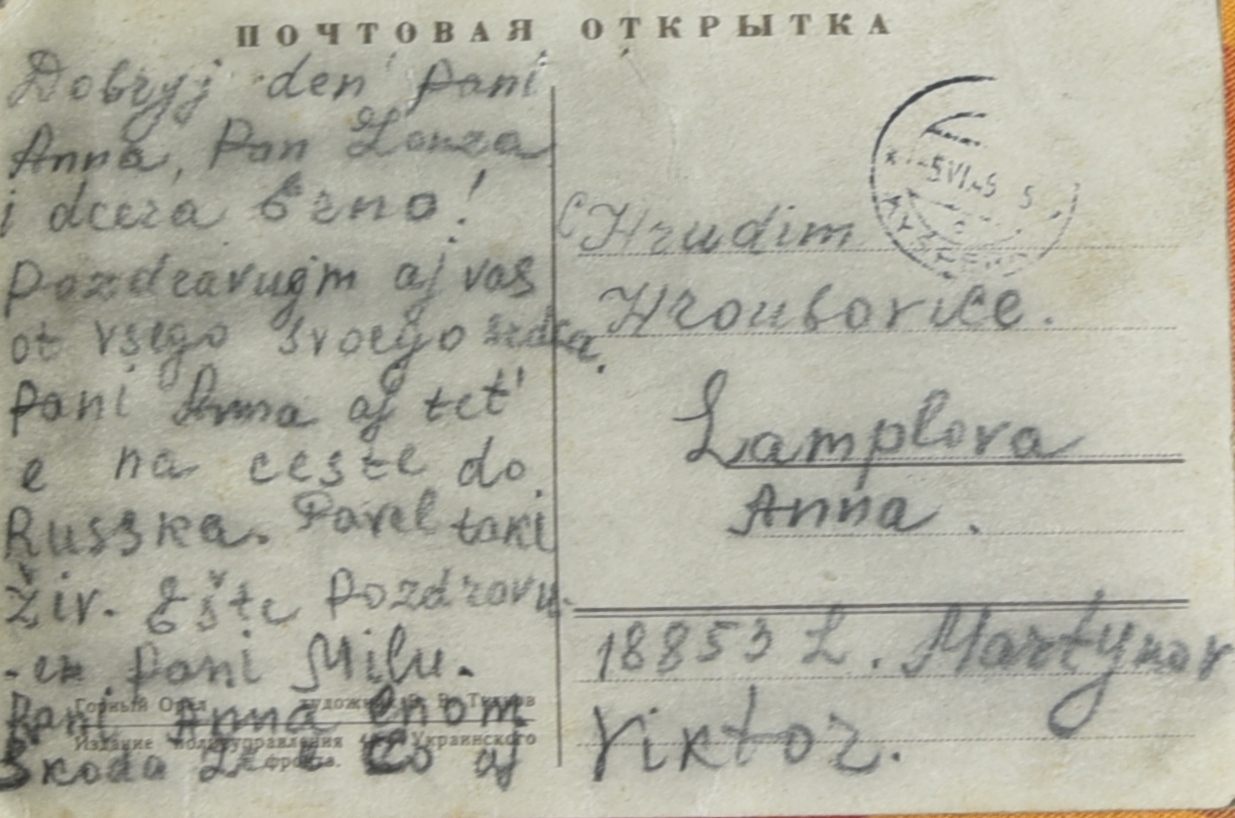 ПОЧТОВАЯ ОТКРЫТКА
Dobryj den' pani
Anna, Pan Lonza
i dcera Brno!
pozdravujm aj vas
ot vsego svoego
pani Anna aj tet'
e na ceste do
Russka. Pavel taki
živ. Ešte pozdravu-
-em pani Milu.
Pani Anna enom
škoda že co aj
Горный Орёл
художник
Издание политуправления 4 Украинского
фронта.
5 VI 45
Hrudim
Hroubovice.
Lamplova
Anna.
18853 L. Martynov
Viktor.